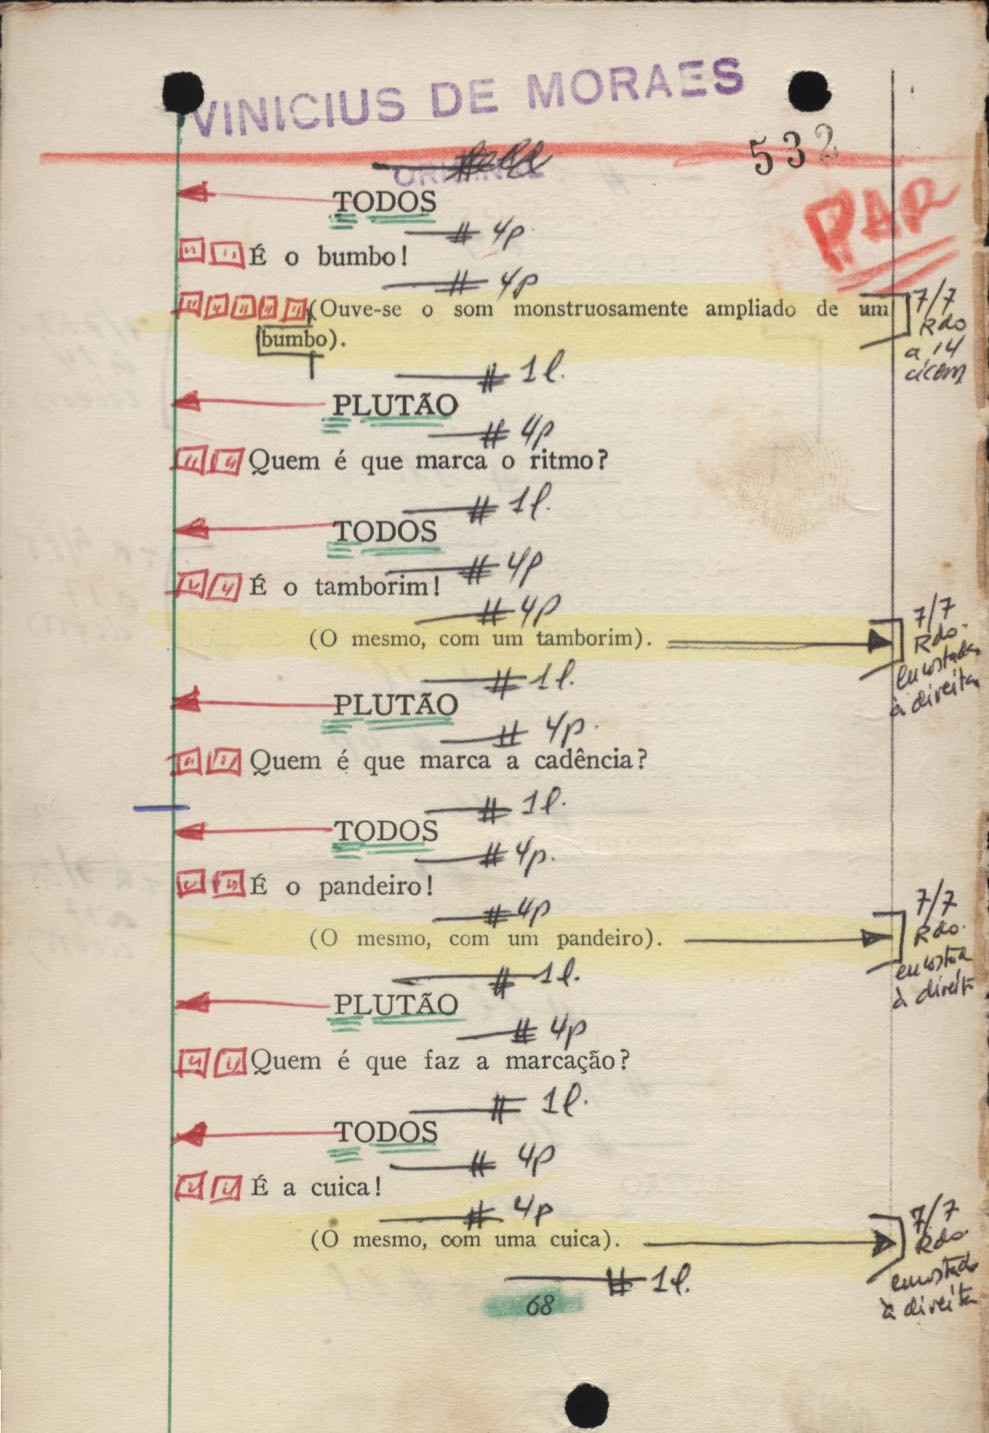 VINICIUS DE MORAES
532
ORIGINAL
PAR
TODOS
# 4p
É o bumbo!
# 4p
(Ouve-se o som monstruosamente ampliado de um
bumbo).
7/7
Rdo
a 14
cícem
# 1l.
PLUTÃO
# 4p
Quem é que marca o ritmo?
# 1l.
TODOS
# 4p
É o tamborim!
# 4p
(O mesmo, com um tamborim).
7/7
Rdo.
encostado
à direita
# 1l.
PLUTÃO
# 4p.
Quem é que marca a cadência?
# 1l.
TODOS
# 4p.
É o pandeiro!
# 4p
(O mesmo, com um pandeiro).
7/7
Rdo.
à direit
# 1l.
PLUTÃO
# 4p
Quem é que faz a marcação?
# 1l.
TODOS
# 4p
É a cuica!
# 4p
(O mesmo, com uma cuica).
7/7
Rdo.
encostado
à direita
# 1l.
68